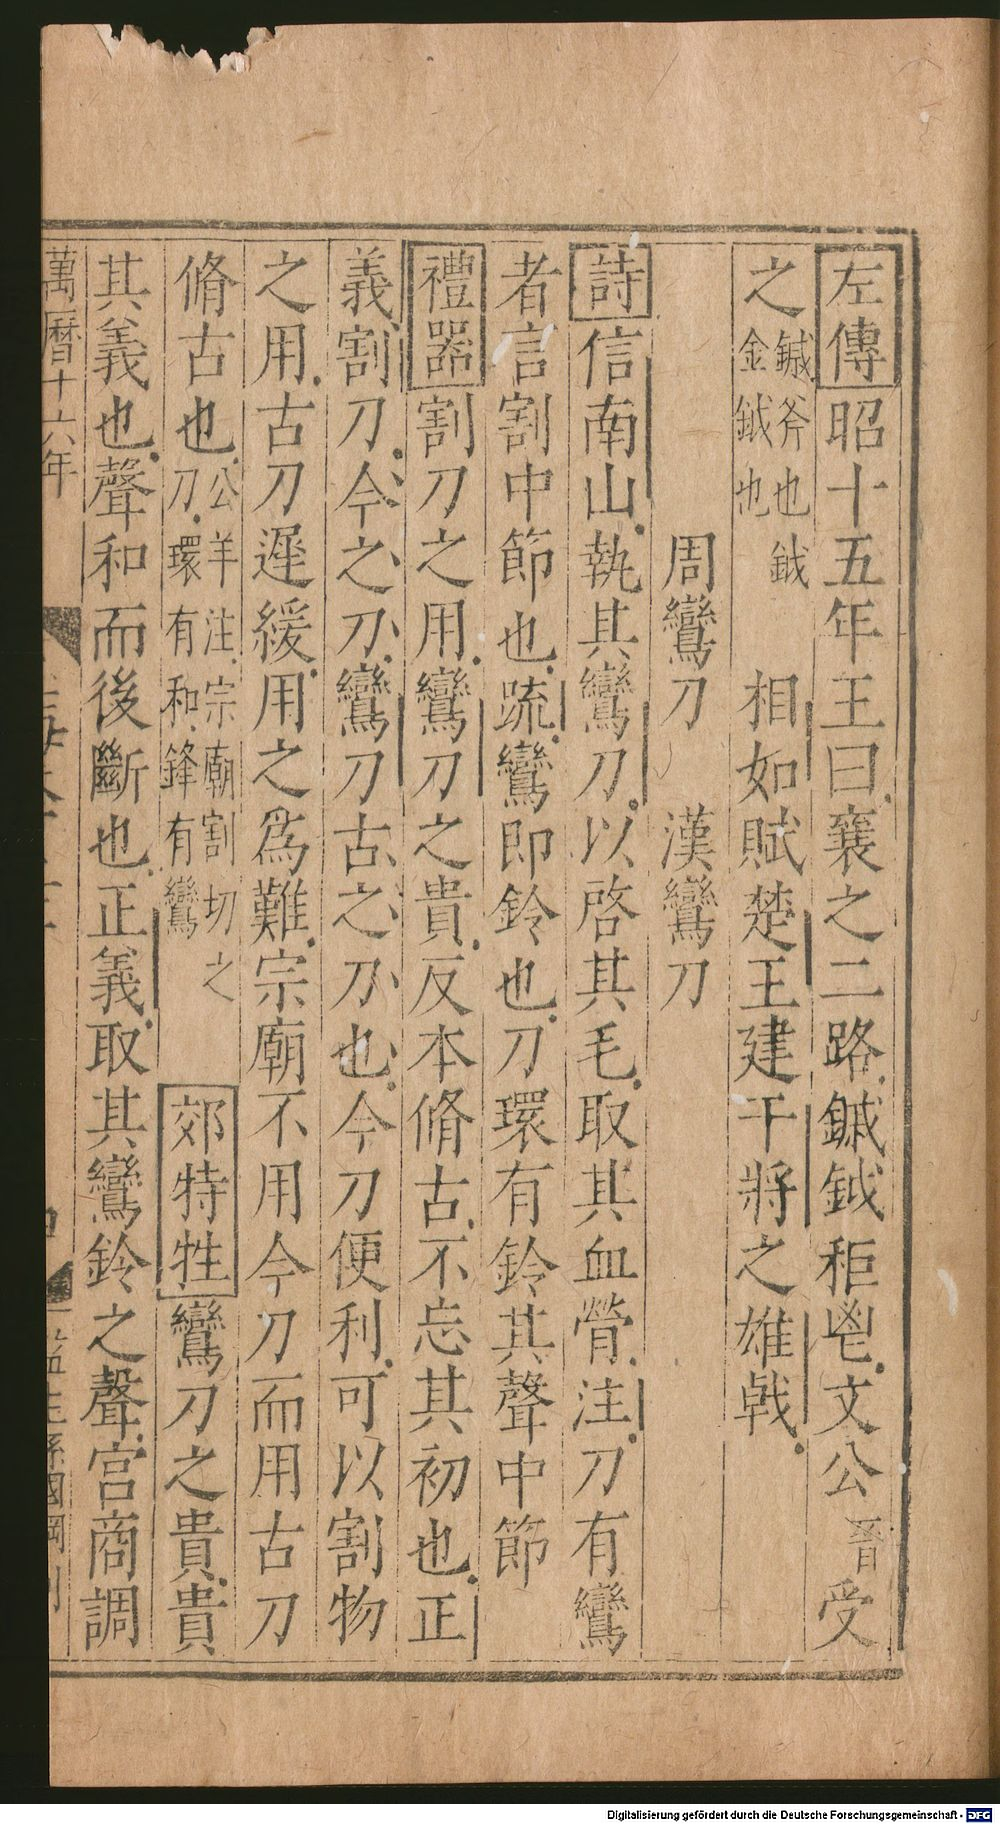 左傳昭十五年王曰襄之二路鏚鉞秬鬯文公晉受
之鏚斧也鉞金鉞也相如賦楚王建干將之雄戟
周鸞刀 漢鸞刀
詩信南山執其鸞刀以啓其毛取其血膋注刀有鸞
者言割中節也疏鸞即鈴也刀環有鈴其聲中節
禮器割刀之用鸞刀之貴反本脩古不忘其初也正
義割刀今之刀鸞刀古之刀也今刀便利可以割物
之用古刀遲緩用之爲難宗廟不用今刀而用古刀
脩古也公羊注宗廟割切之刀環有和鋒有鸞郊特牲鸞刀之貴貴
其義也聲和而後斷也正義取其鸞鈴之聲宮商調
萬曆十六年
Digitalisierung gefördert durch die Deutsche Forschungsgemeinschaft - DFG